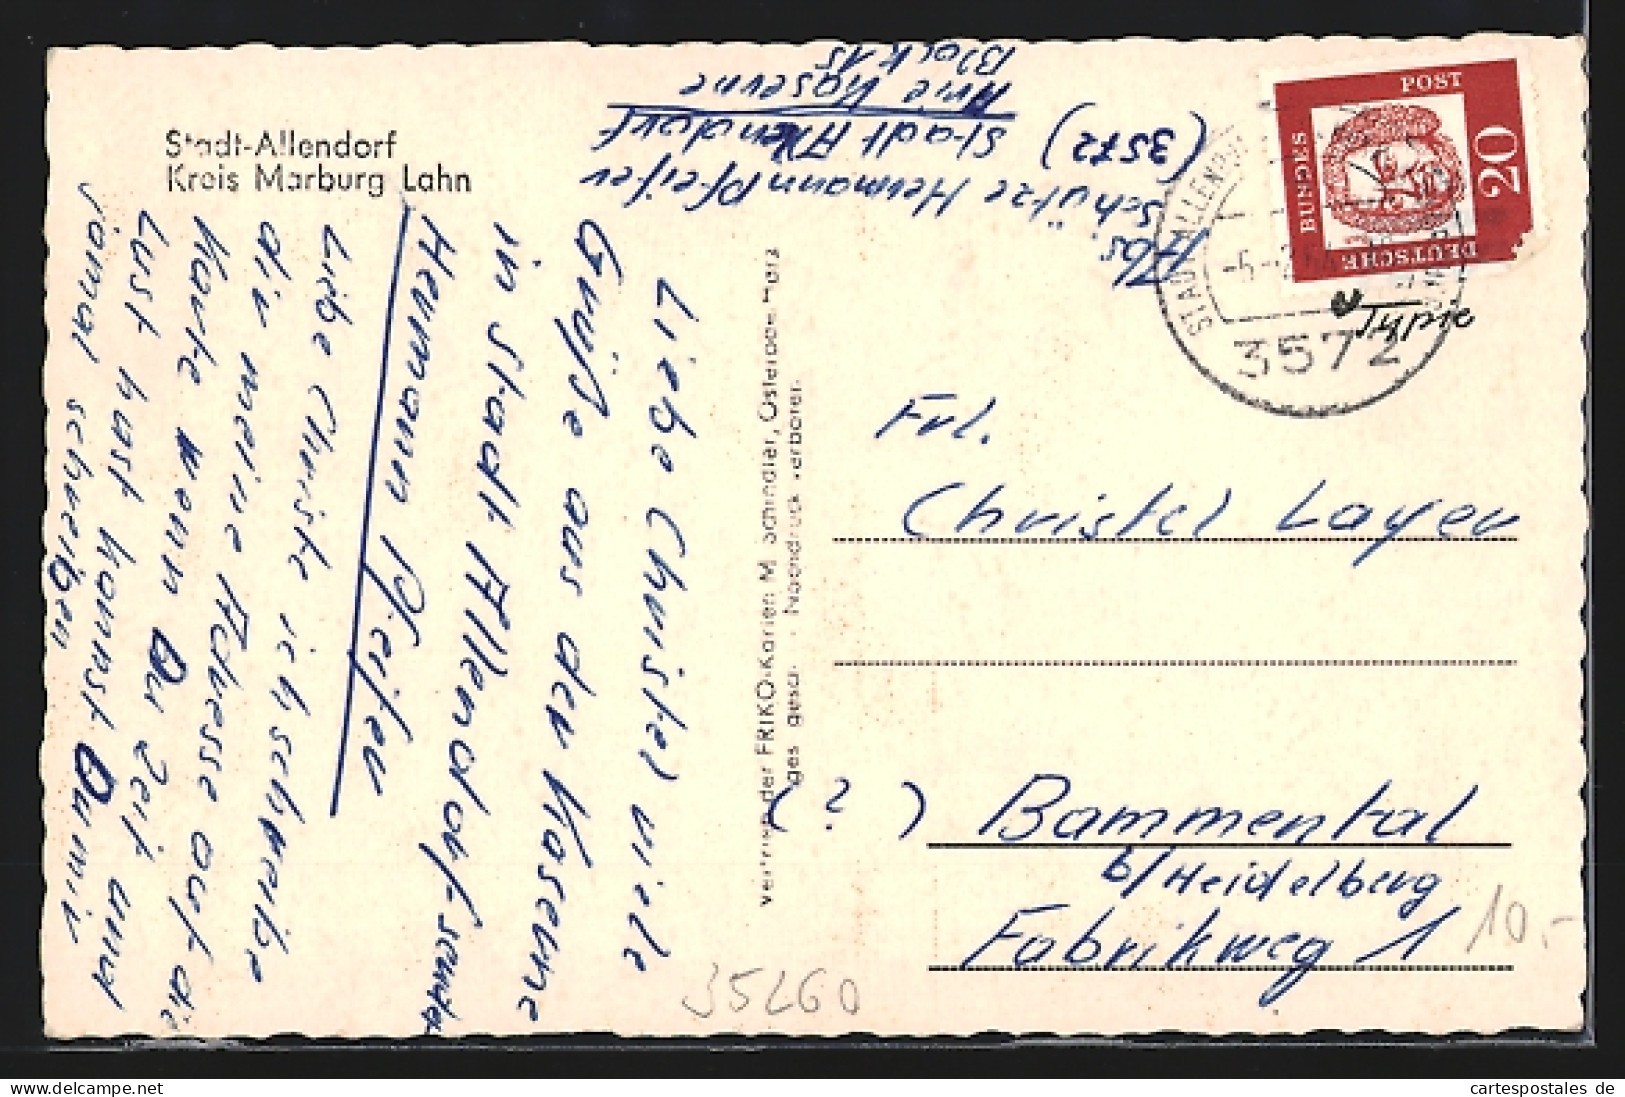 Stadt-Allendorf
Kreis Marburg Lahn
Abs.
Schütze Hermann Pfeifer
(3572) Stadt Allendorf
Kaserne
Block 15
POST
20
DEUTSCHE
BUNDES
STADT ALLENDORF
3572
Type
Liebe Christel viele
Grüße aus der Kaserne
in Stadt Allendorf sendet
Hermann Pfeifer
Liebe Christe ich schreibe
dir meine Adresse auf die
Karte wenn Du Zeit und
Lust hast kannst Du mir
jamal schreiben
Vertrieb der FRIKO-Karten M. Schindler, Osterode Harz
Ges. gesch. · Nachdruck verboten
Frl.
Christel Layer
(?) Bammental
b/Heidelberg
Fabrikweg 1
10.-
35260
© cartespostales.de
cartespostales de